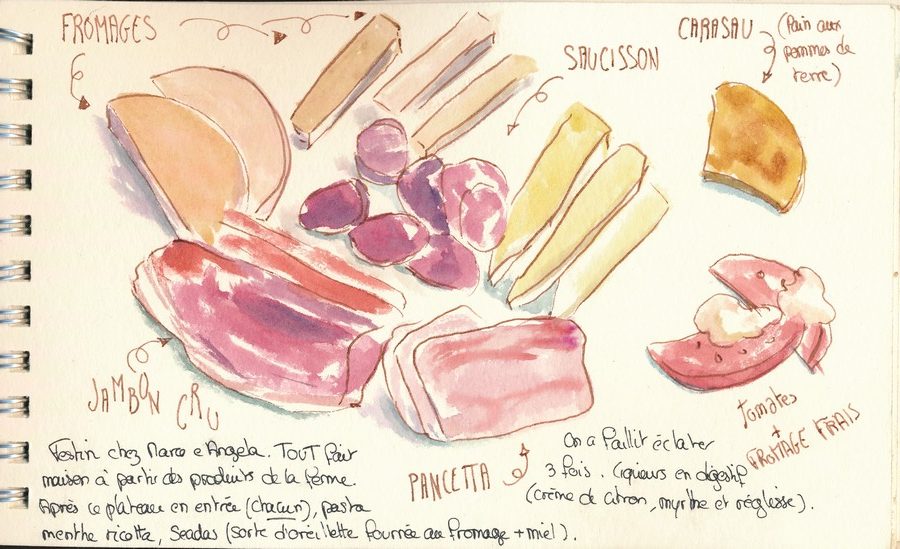 FROMAGES
SAUCISSON
CARASAU (Pain aux
pommes de
terre)
JAMBON CRU
PANCETTA
tomates
+
FROMAGE FRAIS
Festin chez Marco e Angela. TOUT fait
maison à partir des produits de la ferme
Après ce plateau en entrée (chacun), pasta
menthe ricotta, Seadas (sorte d'oreillette fourrée au fromage + miel).
On a faillit éclater
3 fois. Liqueurs en digestif
(crème de citron, myrthe et réglisse).